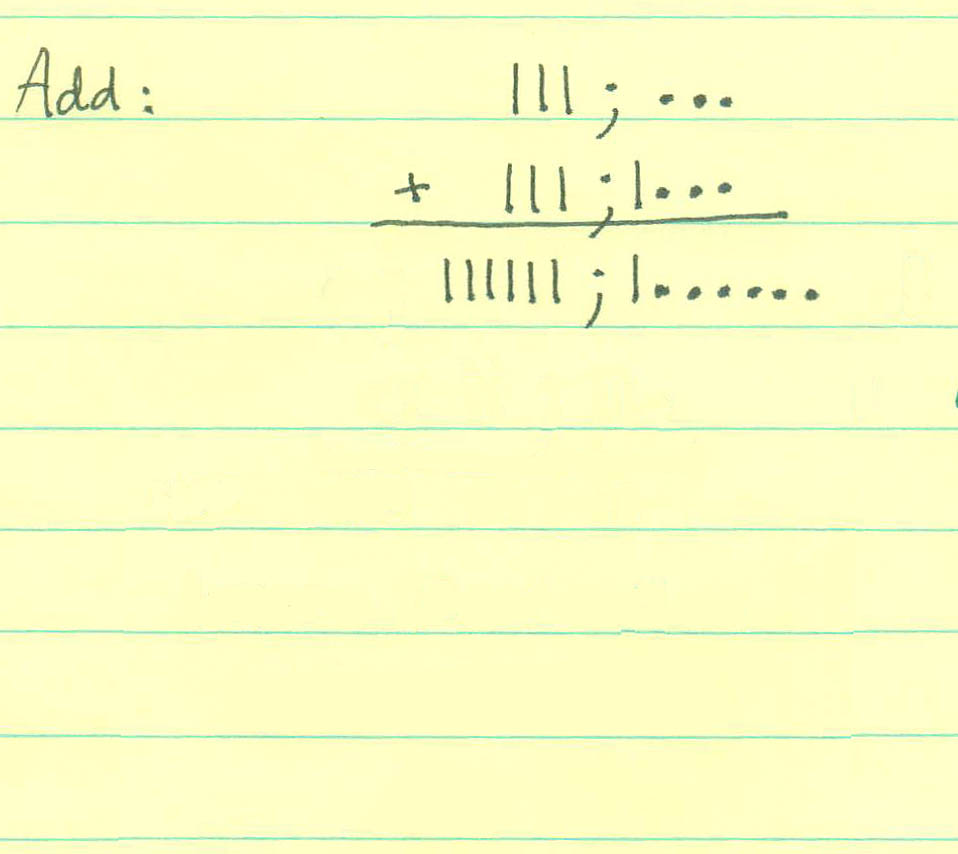 Add: ||| ; •••
+ ||| ; |•••
|||||| ; |••••••